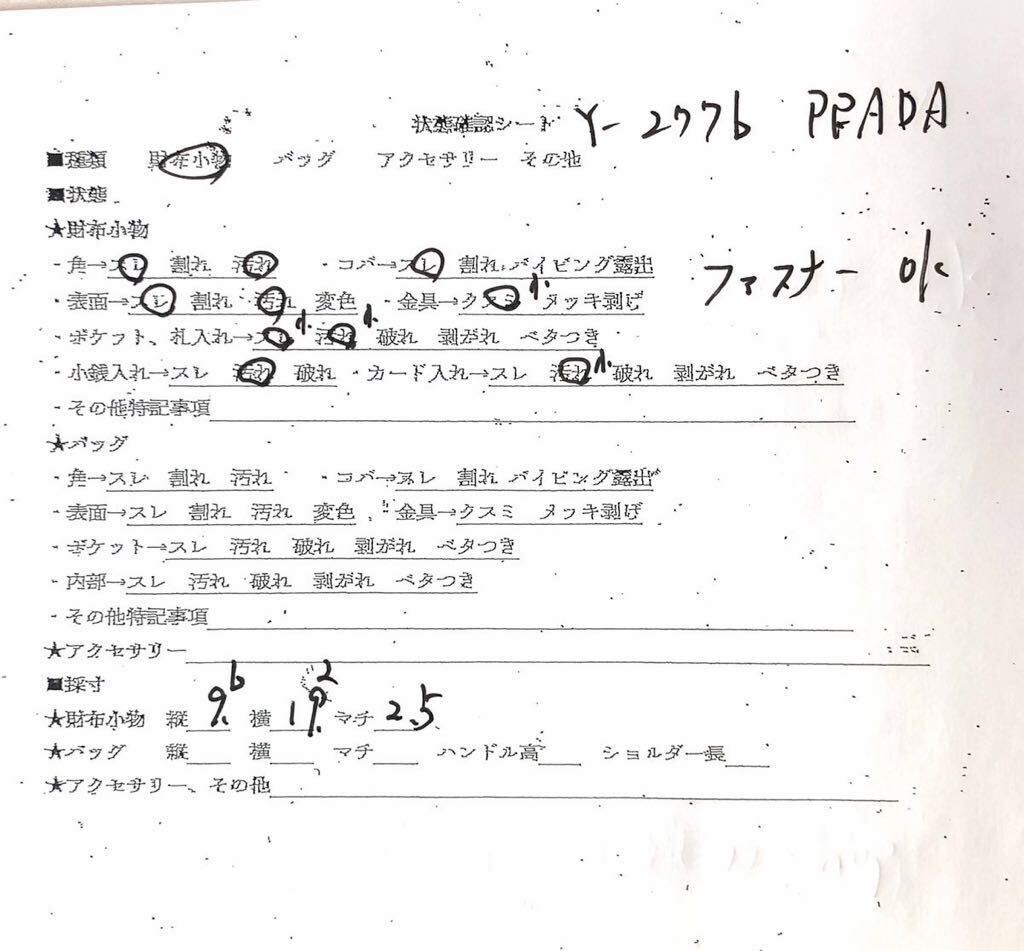 状態確認シート Y-2776 PRADA
■種類 財布小物 バッグ アクセサリー その他
■状態
★財布小物
・角→スレ 割れ 汚れ ・コバ→スレ 割れ パイピング露出 ファスナー OK
・表面→スレ 割れ 汚れ 変色 ・金具→クスミ 小 メッキ剥げ
・ポケット、札入れ→スレ 小 汚れ 小 破れ 剥がれ ベタつき
・小銭入れ→スレ 汚れ 破れ ・カード入れ→スレ 汚れ 小 破れ 剥がれ ベタつき
・その他特記事項
★バッグ
・角→スレ 割れ 汚れ ・コバ→スレ 割れ パイピング露出
・表面→スレ 割れ 汚れ 変色 ・金具→クスミ メッキ剥げ
・ポケット→スレ 汚れ 破れ 剥がれ ベタつき
・内部→スレ 汚れ 破れ 剥がれ ベタつき
・その他特記事項
★アクセサリー
■採寸
★財布小物 縦 9.6 横 19.2 マチ 2.5
★バッグ 縦 横 マチ ハンドル高 ショルダー長
★アクセサリー、その他